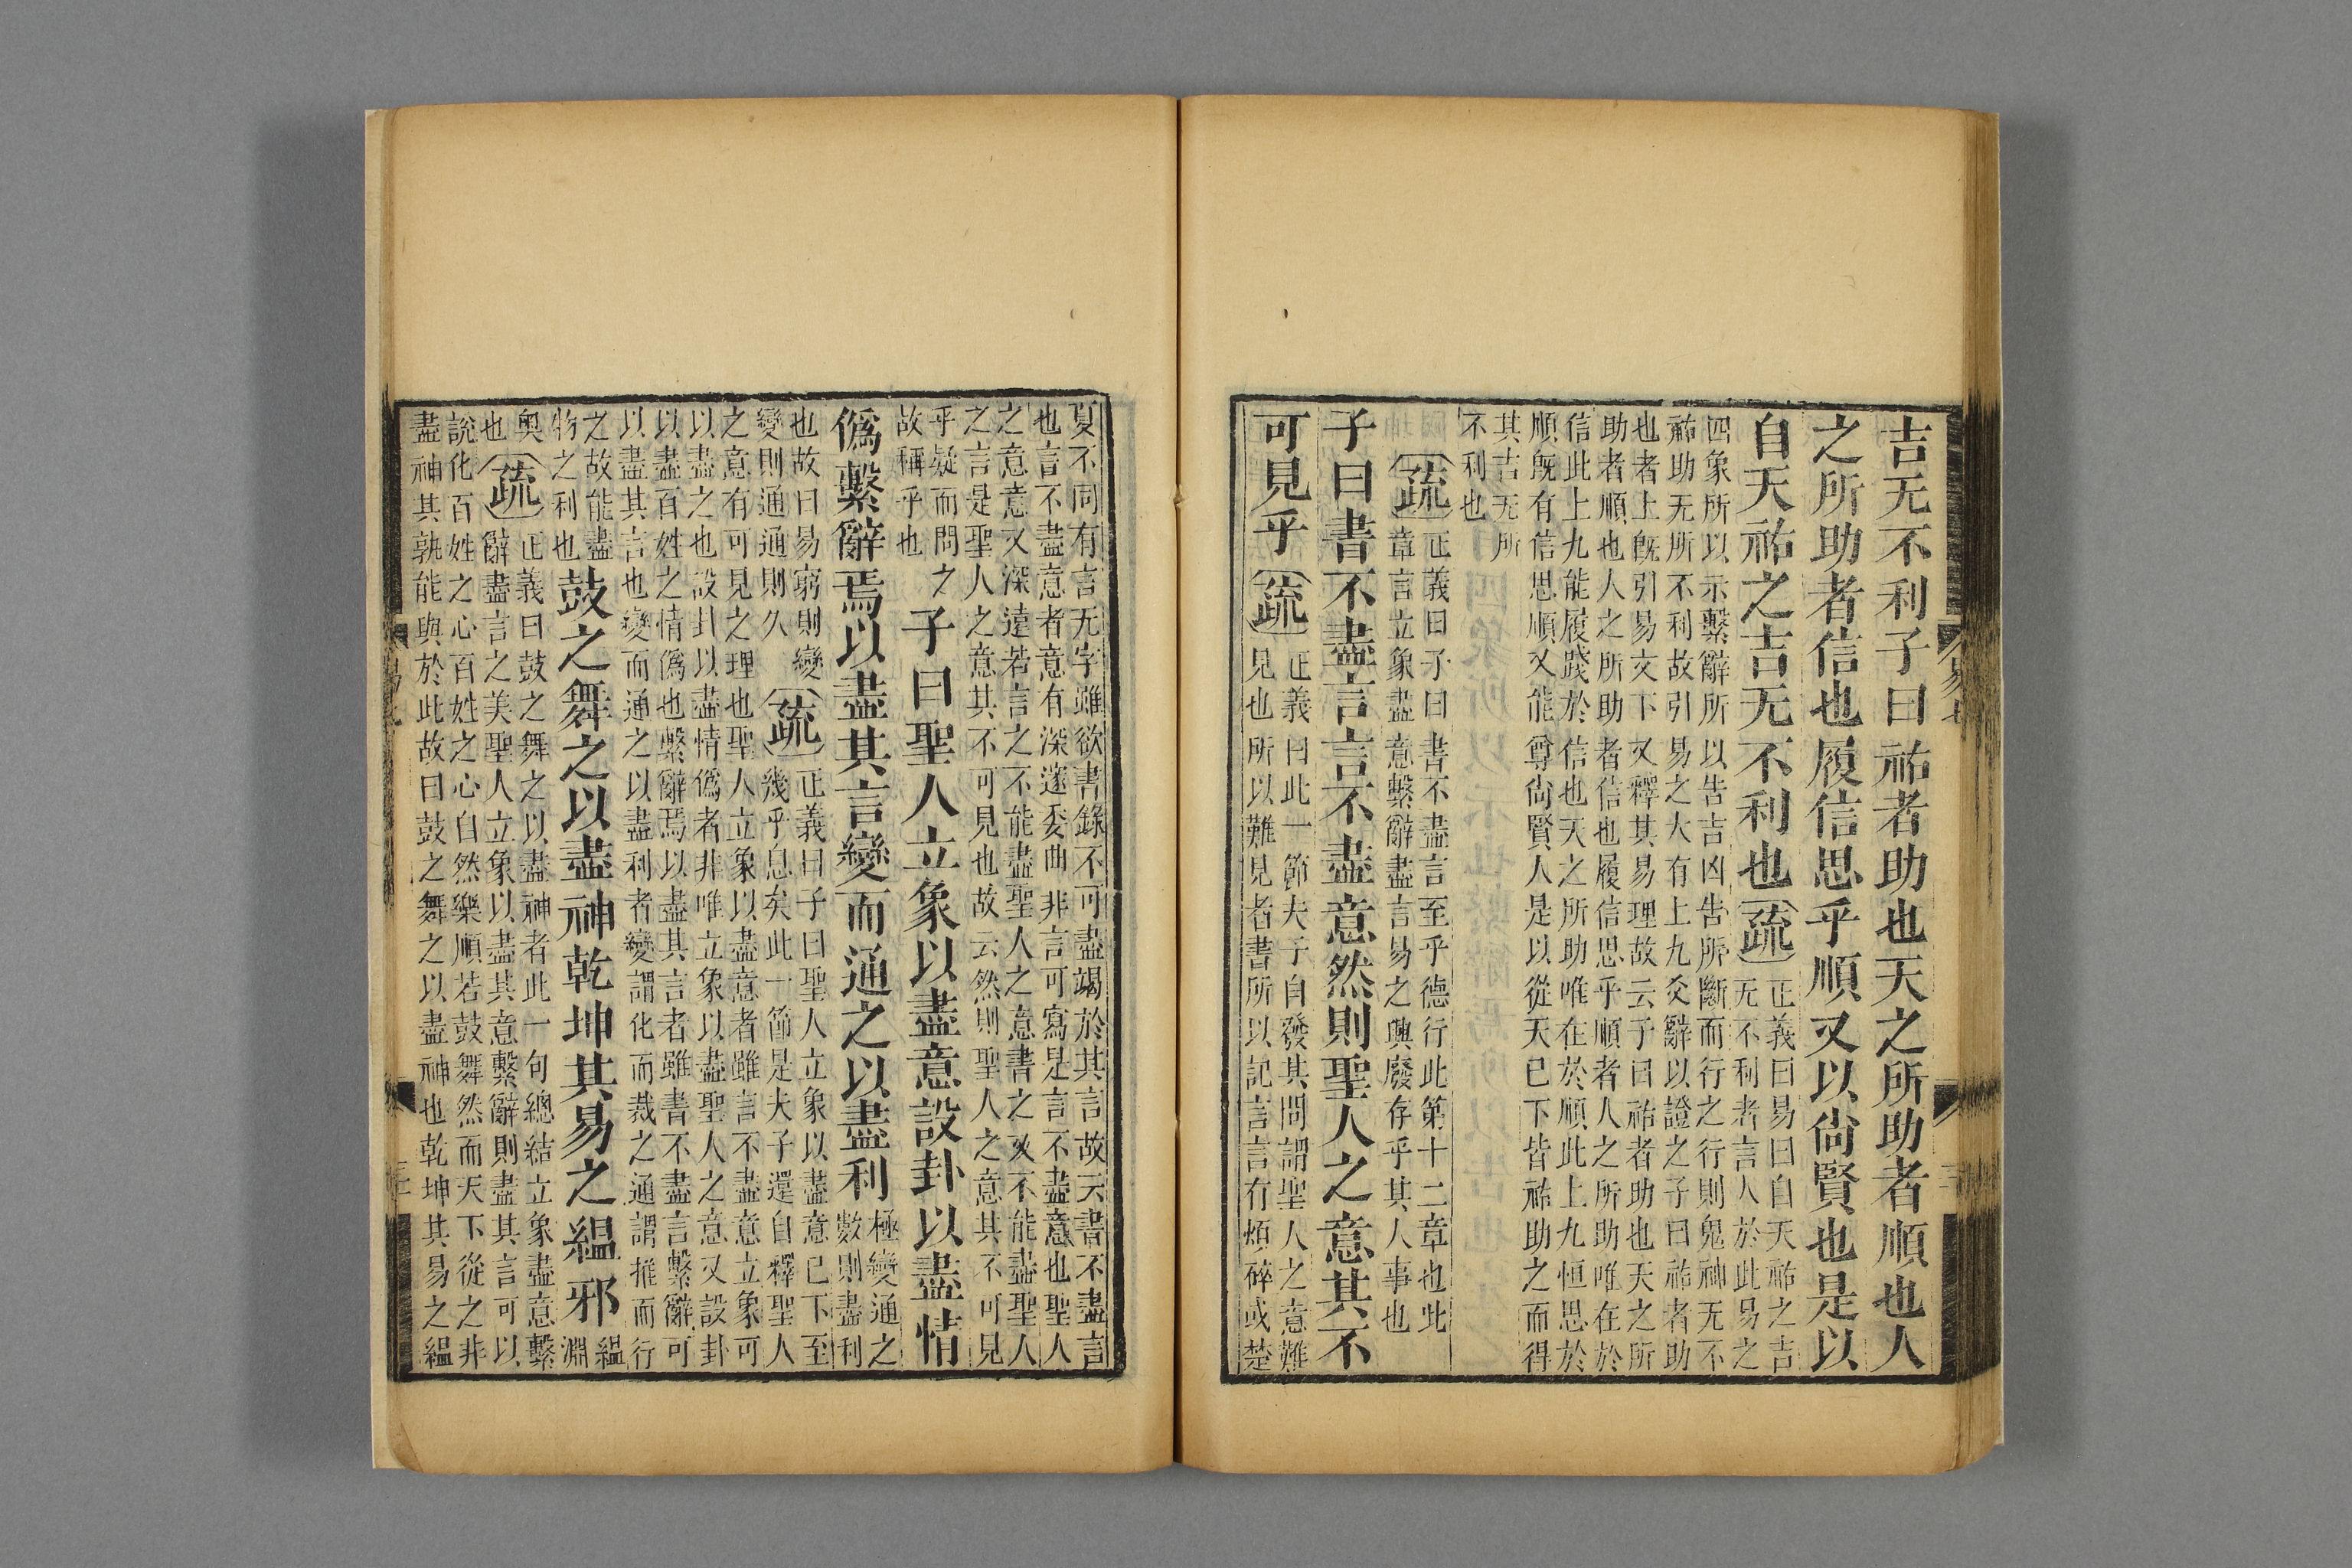 吉无不利子曰祐者助也天之所助者順也人
之所助者信也履信思乎順又以尙賢也是以
自天祐之吉无不利也
疏
正義曰易曰自天祐之吉
无不利者言人於此易之
四象所以示繫辭所以告吉凶告所斷而行之行則鬼神无不
祐助无所不利故引易之大有上九爻辭以證之子曰祐者助
也者上旣引易文下又釋其易理故云子曰祐者助也天之所
助者順也人之所助者信也履信思乎順者人之所助唯在於
信此上九能履踐於信也天之所助唯在於順此上九恒思於
順旣有信思順又能尊尙賢人是以從天已下皆祐助之而得
其吉无所
不利也
疏
正義曰子曰書不盡言至乎德行此第十二章也此
章言立象盡意繫辭盡言易之興廢存乎其人事也
子曰書不盡言言不盡意然則聖人之意其不
可見乎
疏
正義曰此一節夫子自發其問謂聖人之意難
見也所以難見者書所以記言言有煩碎或楚
夏不同有言无字雖欲書錄不可盡竭於其言故云書不盡言
也言不盡意者意有深邃委曲非言可寫是言不盡意也聖人
之意意又深遠若言之不能盡聖人之意書之又不能盡聖人
之言是聖人之意其不可見也故云然則聖人之意其不可見
乎疑而問之
故稱乎也
子曰聖人立象以盡意設卦以盡情
僞繫辭焉以盡其言變而通之以盡利
極變通之
數則盡利
也故曰易窮則變
變則通通則久
疏
正義曰子曰聖人立象以盡意已下至
幾乎息矣此一節是夫子還自釋聖人
之意有可見之理也聖人立象以盡意者雖言不盡意立象可
以盡之也設卦以盡情僞者非唯立象以盡聖人之意又設卦
以盡百姓之情僞也繫辭焉以盡其言者雖書不盡言繫辭可
以盡其言也變而通之以盡利者變謂化而裁之通謂推而行
之故能盡
物之利也
鼓之舞之以盡神乾坤其易之緼邪
緼
淵
奧
也
疏
正義曰鼓之舞之以盡神者此一句總結立象盡意繫
辭盡言之美聖人立象以盡其意繫辭則盡其言可以
說化百姓之心百姓之心自然樂順若鼓舞然而天下從之非
盡神其孰能與於此故曰鼓之舞之以盡神也乾坤其易之緼